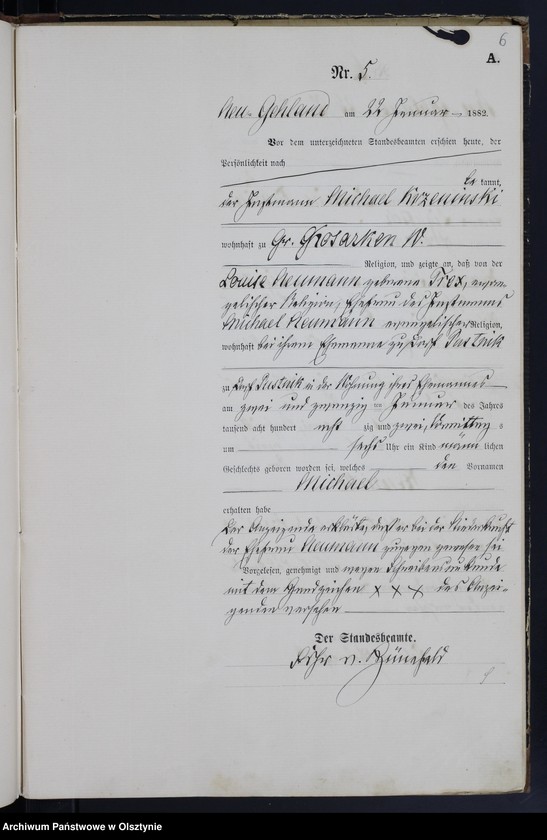 6
A.
Nr. 5.
Neu-Gehland am 22 Januar 1882.
Vor dem unterzeichneten Standesbeamten erschien heute, der
Persönlichkeit nach
be kannt,
der Instmann Michael Krzeminski
wohnhaft zu Gr. Kosarken W.
Religion, und zeigte an, daß von der
Louise Neumann geborene Trox, evan-
gelischer Religion, Ehefrau des Instmanns
Michael Neumann evangelischer Religion,
wohnhaft bei ihrem Ehemanne zu Dorf Pustnik
zu Dorf Pustnik in der Wohnung ihres Ehemannes
am zwei und zwanzig ten Januar des Jahres
tausend acht hundert acht zig und zwei, Vormittag s
um sechs Uhr ein Kind männ lichen
Geschlechts geboren worden sei, welches den Vornamen
Michael
erhalten habe
Der Anzeigende erklärte, daß er bei der Niederkunft
der Ehefrau Neumann zugegen gewesen sei
Vorgelesen, genehmigt und wegen Schreibensunkunde
mit dem Handzeichen x x x des Anzei-
genden versehen
Der Standesbeamte.
v.
Archiwum Państwowe w Olsztynie